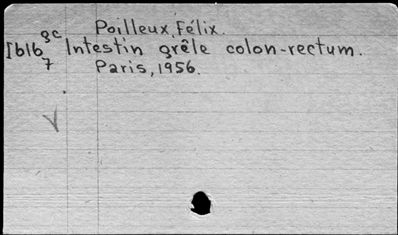 Poilleux, Félix.
Intestin grêle colon-rectum.
Paris, 1956.